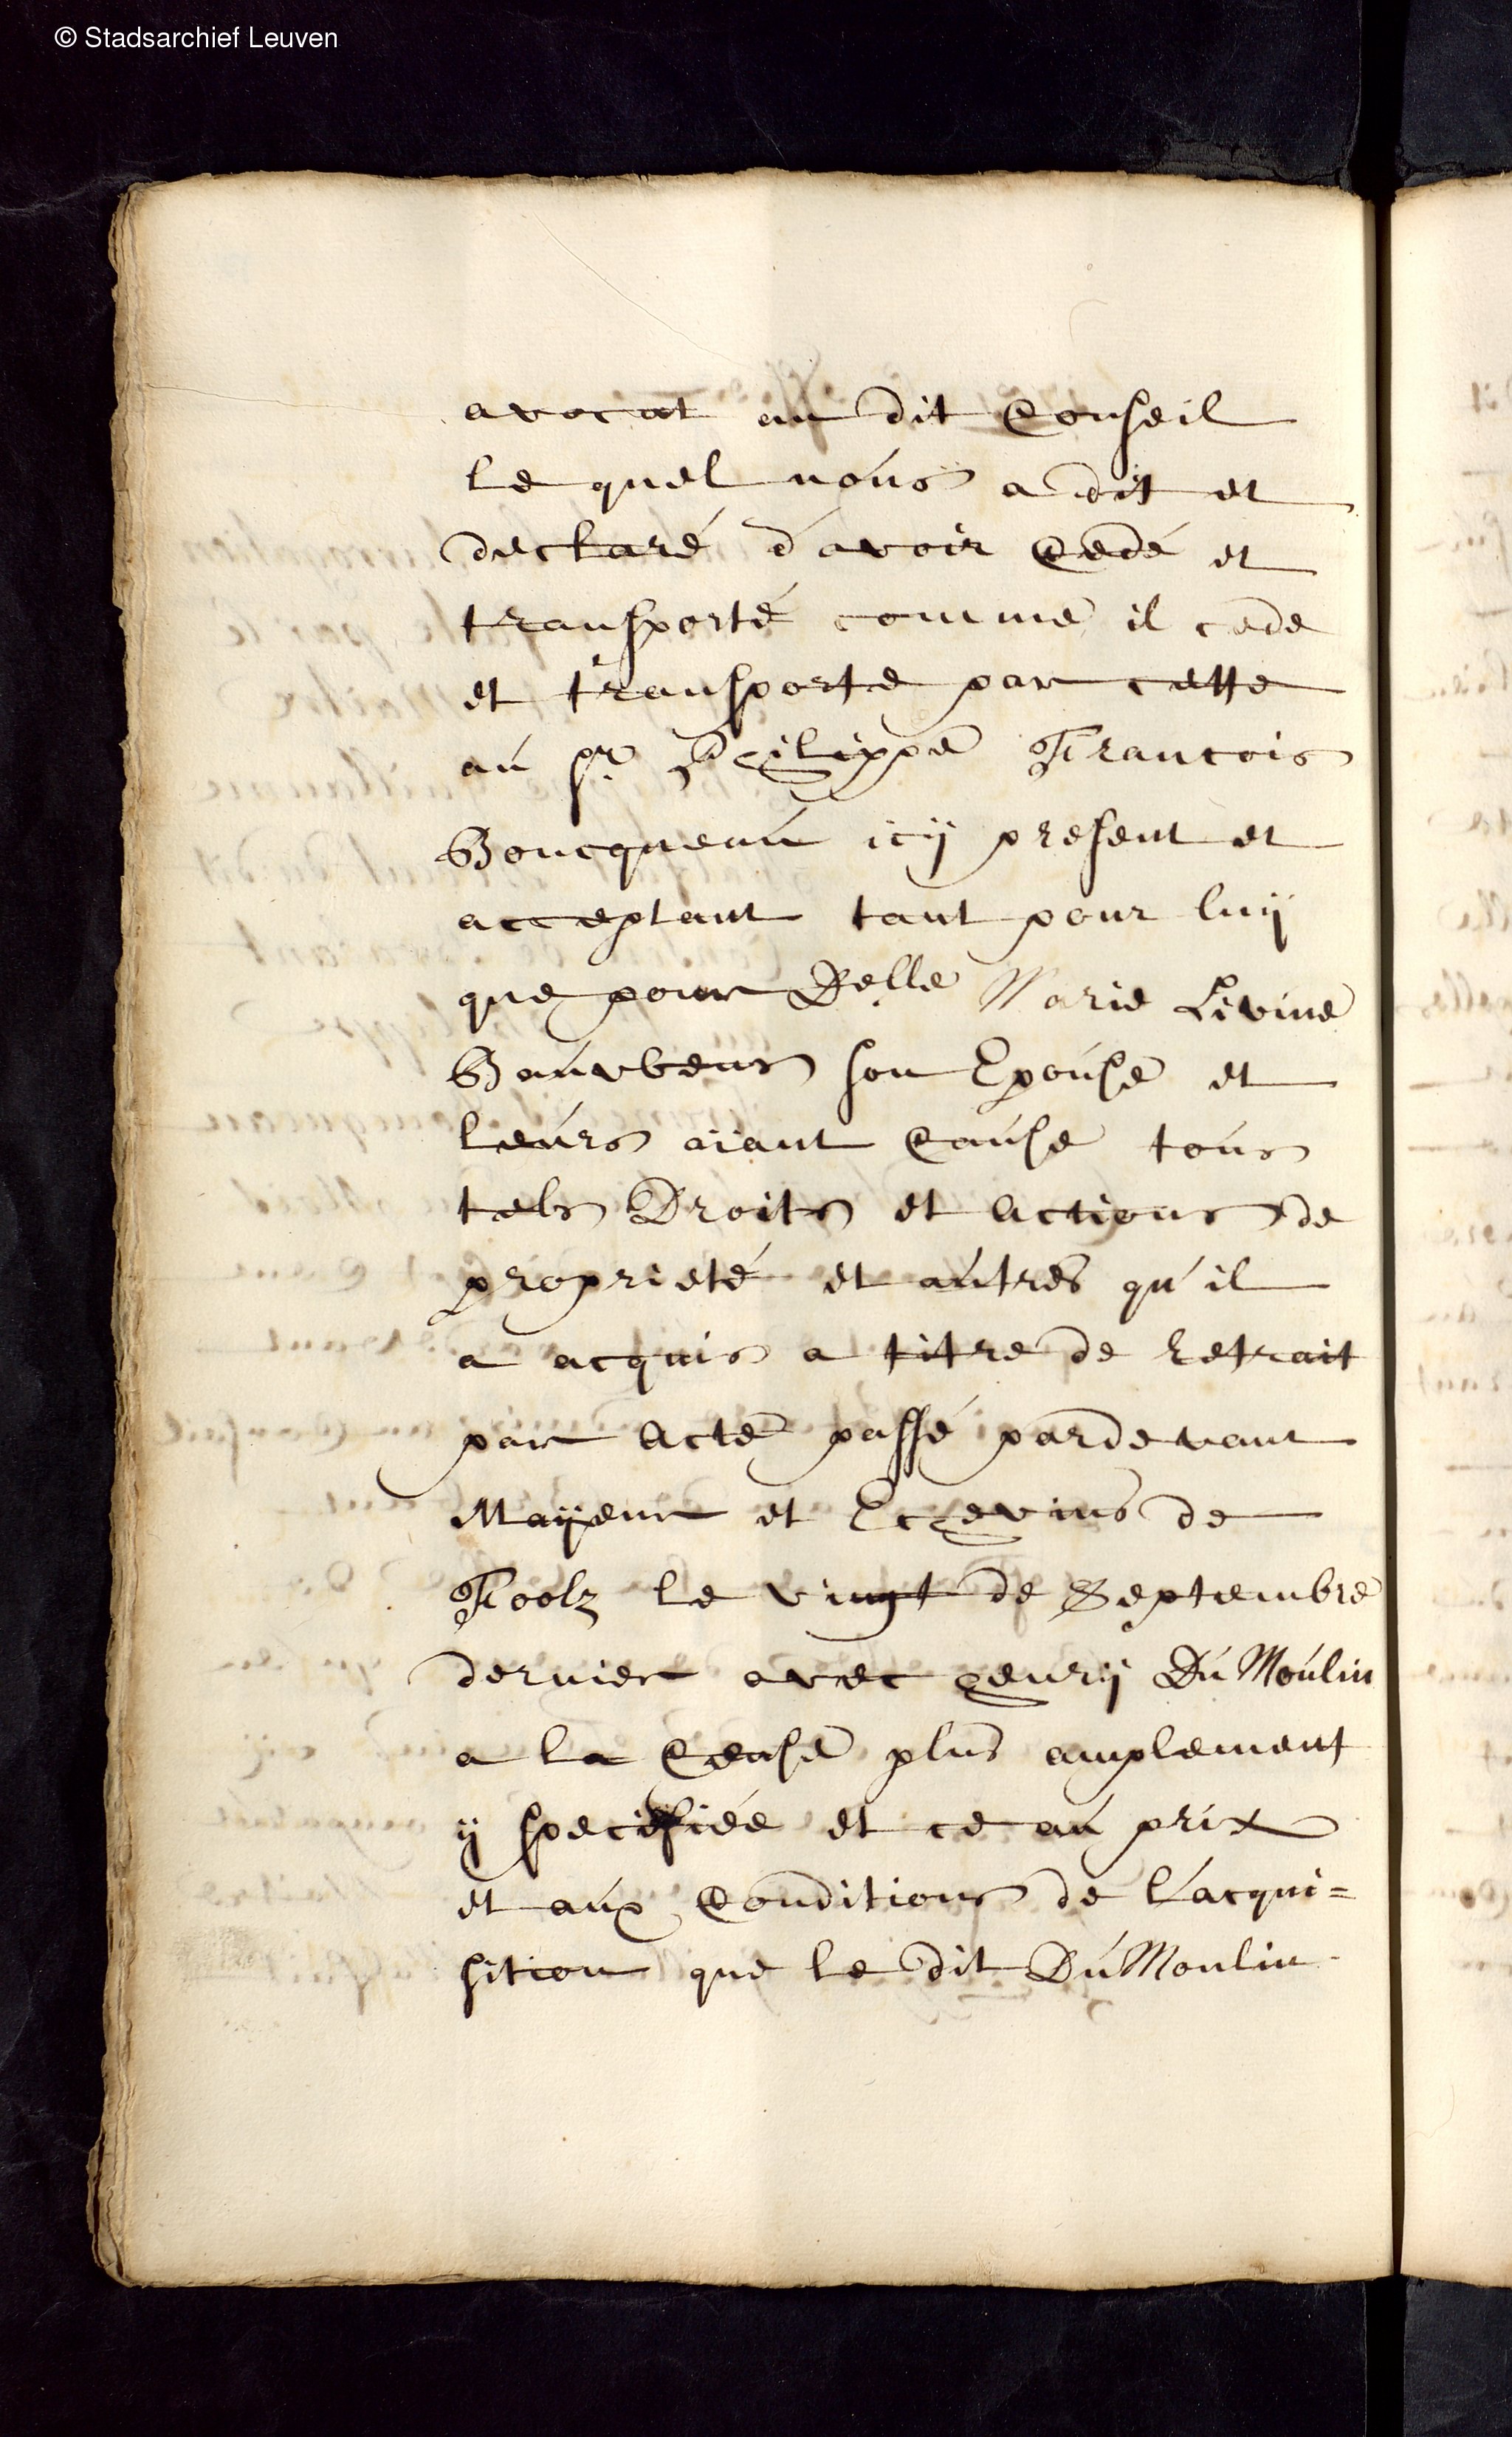 © Stadsarchief Leuven
avocat au dit Conseil
le quel nous a dit et
declaré d'avoir Cedé et
transporté comme il cede
et transporte par cette
au Sr. Philippe Francois
Boucqueau icÿ present et
acceptant tant pour luÿ
que pour Delle Marie Livine
son Epouse et
leurs aiant Cause tous
tels Droits et actions de
proprieté et autres qu'il
a acquis a titre de retrait
par acte passé pardevant
Maÿeur et Echevins de
Foolz le vingt de Septembre
dernier avec henrÿ Du Moulin
a la Cense plus amplement
ÿ specifiée et ce au prix
et aux Conditions de l'acqui=
sition que le dit Du Moulin